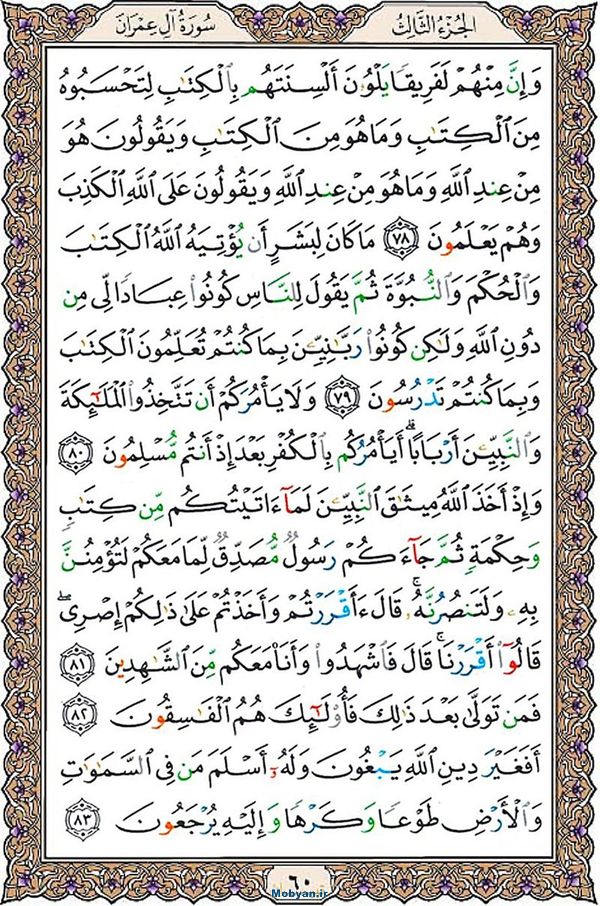 الجُزءُ الثَّالِثُ
سُورَةُ آلِ عِمۡرَانَ
وَإِنَّ مِنۡهُمۡ لَفَرِيقٗا يَلۡوُۥنَ أَلۡسِنَتَهُم بِٱلۡكِتَٰبِ لِتَحۡسَبُوهُ
مِنَ ٱلۡكِتَٰبِ وَمَا هُوَ مِنَ ٱلۡكِتَٰبِ وَيَقُولُونَ هُوَ
مِنۡ عِندِ ٱللَّهِ وَمَا هُوَ مِنۡ عِندِ ٱللَّهِ وَيَقُولُونَ عَلَى ٱللَّهِ ٱلۡكَذِبَ
وَهُمۡ يَعۡلَمُونَ ٧٨ مَا كَانَ لِبَشَرٍ أَن يُؤۡتِيَهُ ٱللَّهُ ٱلۡكِتَٰبَ
وَٱلۡحُكۡمَ وَٱلنُّبُوَّةَ ثُمَّ يَقُولَ لِلنَّاسِ كُونُواْ عِبَادٗا لِّي مِن
دُونِ ٱللَّهِ وَلَٰكِن كُونُواْ رَبَّٰنِيِّـۧنَ بِمَا كُنتُمۡ تُعَلِّمُونَ ٱلۡكِتَٰبَ
وَبِمَا كُنتُمۡ تَدۡرُسُونَ ٧٩ وَلَا يَأۡمُرَكُمۡ أَن تَتَّخِذُواْ ٱلۡمَلَٰٓئِكَةَ
وَٱلنَّبِيِّـۧنَ أَرۡبَابًاۗ أَيَأۡمُرُكُم بِٱلۡكُفۡرِ بَعۡدَ إِذۡ أَنتُم مُّسۡلِمُونَ ٨٠
وَإِذۡ أَخَذَ ٱللَّهُ مِيثَٰقَ ٱلنَّبِيِّـۧنَ لَمَآ ءَاتَيۡتُكُم مِّن كِتَٰبٖ
وَحِكۡمَةٖ ثُمَّ جَآءَكُمۡ رَسُولٞ مُّصَدِّقٞ لِّمَا مَعَكُمۡ لَتُؤۡمِنُنَّ
بِهِۦ وَلَتَنصُرُنَّهُۥۚ قَالَ ءَأَقۡرَرۡتُمۡ وَأَخَذۡتُمۡ عَلَىٰ ذَٰلِكُمۡ إِصۡرِيۖ
قَالُوٓاْ أَقۡرَرۡنَاۚ قَالَ فَٱشۡهَدُواْ وَأَنَا۠ مَعَكُم مِّنَ ٱلشَّٰهِدِينَ ٨١
فَمَن تَوَلَّىٰ بَعۡدَ ذَٰلِكَ فَأُوْلَٰٓئِكَ هُمُ ٱلۡفَٰسِقُونَ ٨٢
أَفَغَيۡرَ دِينِ ٱللَّهِ يَبۡغُونَ وَلَهُۥٓ أَسۡلَمَ مَن فِي ٱلسَّمَٰوَٰتِ
وَٱلۡأَرۡضِ طَوۡعٗا وَكَرۡهٗا وَإِلَيۡهِ يُرۡجَعُونَ ٨٣
٦٠
Mobyan.ir